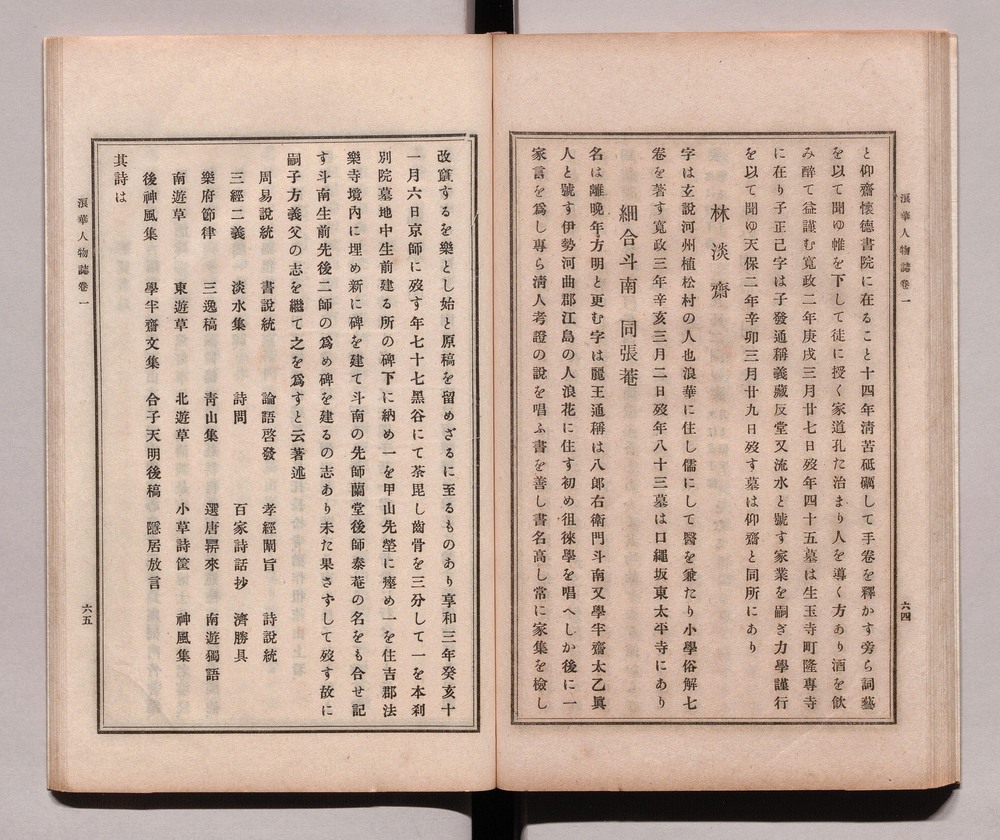 浪華人物誌卷一
六四
と仰齋懷德書院に在ること十四年淸苦砥礪して手卷を釋かす旁ら詞藝
を以て聞ゆ帷を下して徒に授く家道孔た治まり人を導く方あり酒を飮
み醉て益謹む寬政二年庚戌三月廿七日歿す年四十五墓は生玉寺町隆專寺
に在り子正己字は子發通稱義藏反堂又流水と號す家業を嗣ぎ力學謹行
を以て聞ゆ天保二年辛卯三月廿九日歿す墓は仰齋と同所にあり
林淡齋
字は玄說河州植松村の人也浪華に住し儒にして醫を兼たり小學俗解七
卷を著す寬政三年辛亥三月二日歿年八十三墓は口繩坂東太平寺にあり
細合斗南 同張菴
名は離晚年方明と更む字は麗王通稱は八郞右衞門斗南又學半齋太乙眞
人と號す伊勢河曲郡江島の人浪花に住す初め徂徠學を唱へしか後に一
家言を爲し專ら淸人考證の說を唱ふ書を善し書名高し常に家集を檢し
改竄するを樂とし始と原稿を留めざるに至るものあり享和三年癸亥十
一月六日京師に歿す年七十七黑谷にて茶毘し齒骨を三分して一を本刹
別院墓地中生前建る所の碑下に納め一を甲山先塋に瘞め一を住吉郡法
樂寺境內に埋め新に碑を建て斗南の先師蘭堂後師泰菴の名をも合せ記
す斗南生前先後二師の爲め碑を建るの志あり未た果さずして歿す故に
嗣子方義父の志を繼て之を爲すと云著述
周易說統 書說統 論語啓發 孝經闡旨 詩說統
三經二義 淡水集 詩問 百家詩話抄 濟勝具
樂府節律 三逸稿 靑山集 選唐集來 南遊獨語
南遊草 東遊草 北遊草 小草詩筐 神風集
後神風集 學半齋文集 合子天明後稿 隱居放言
其詩は
浪華人物誌卷一
六五